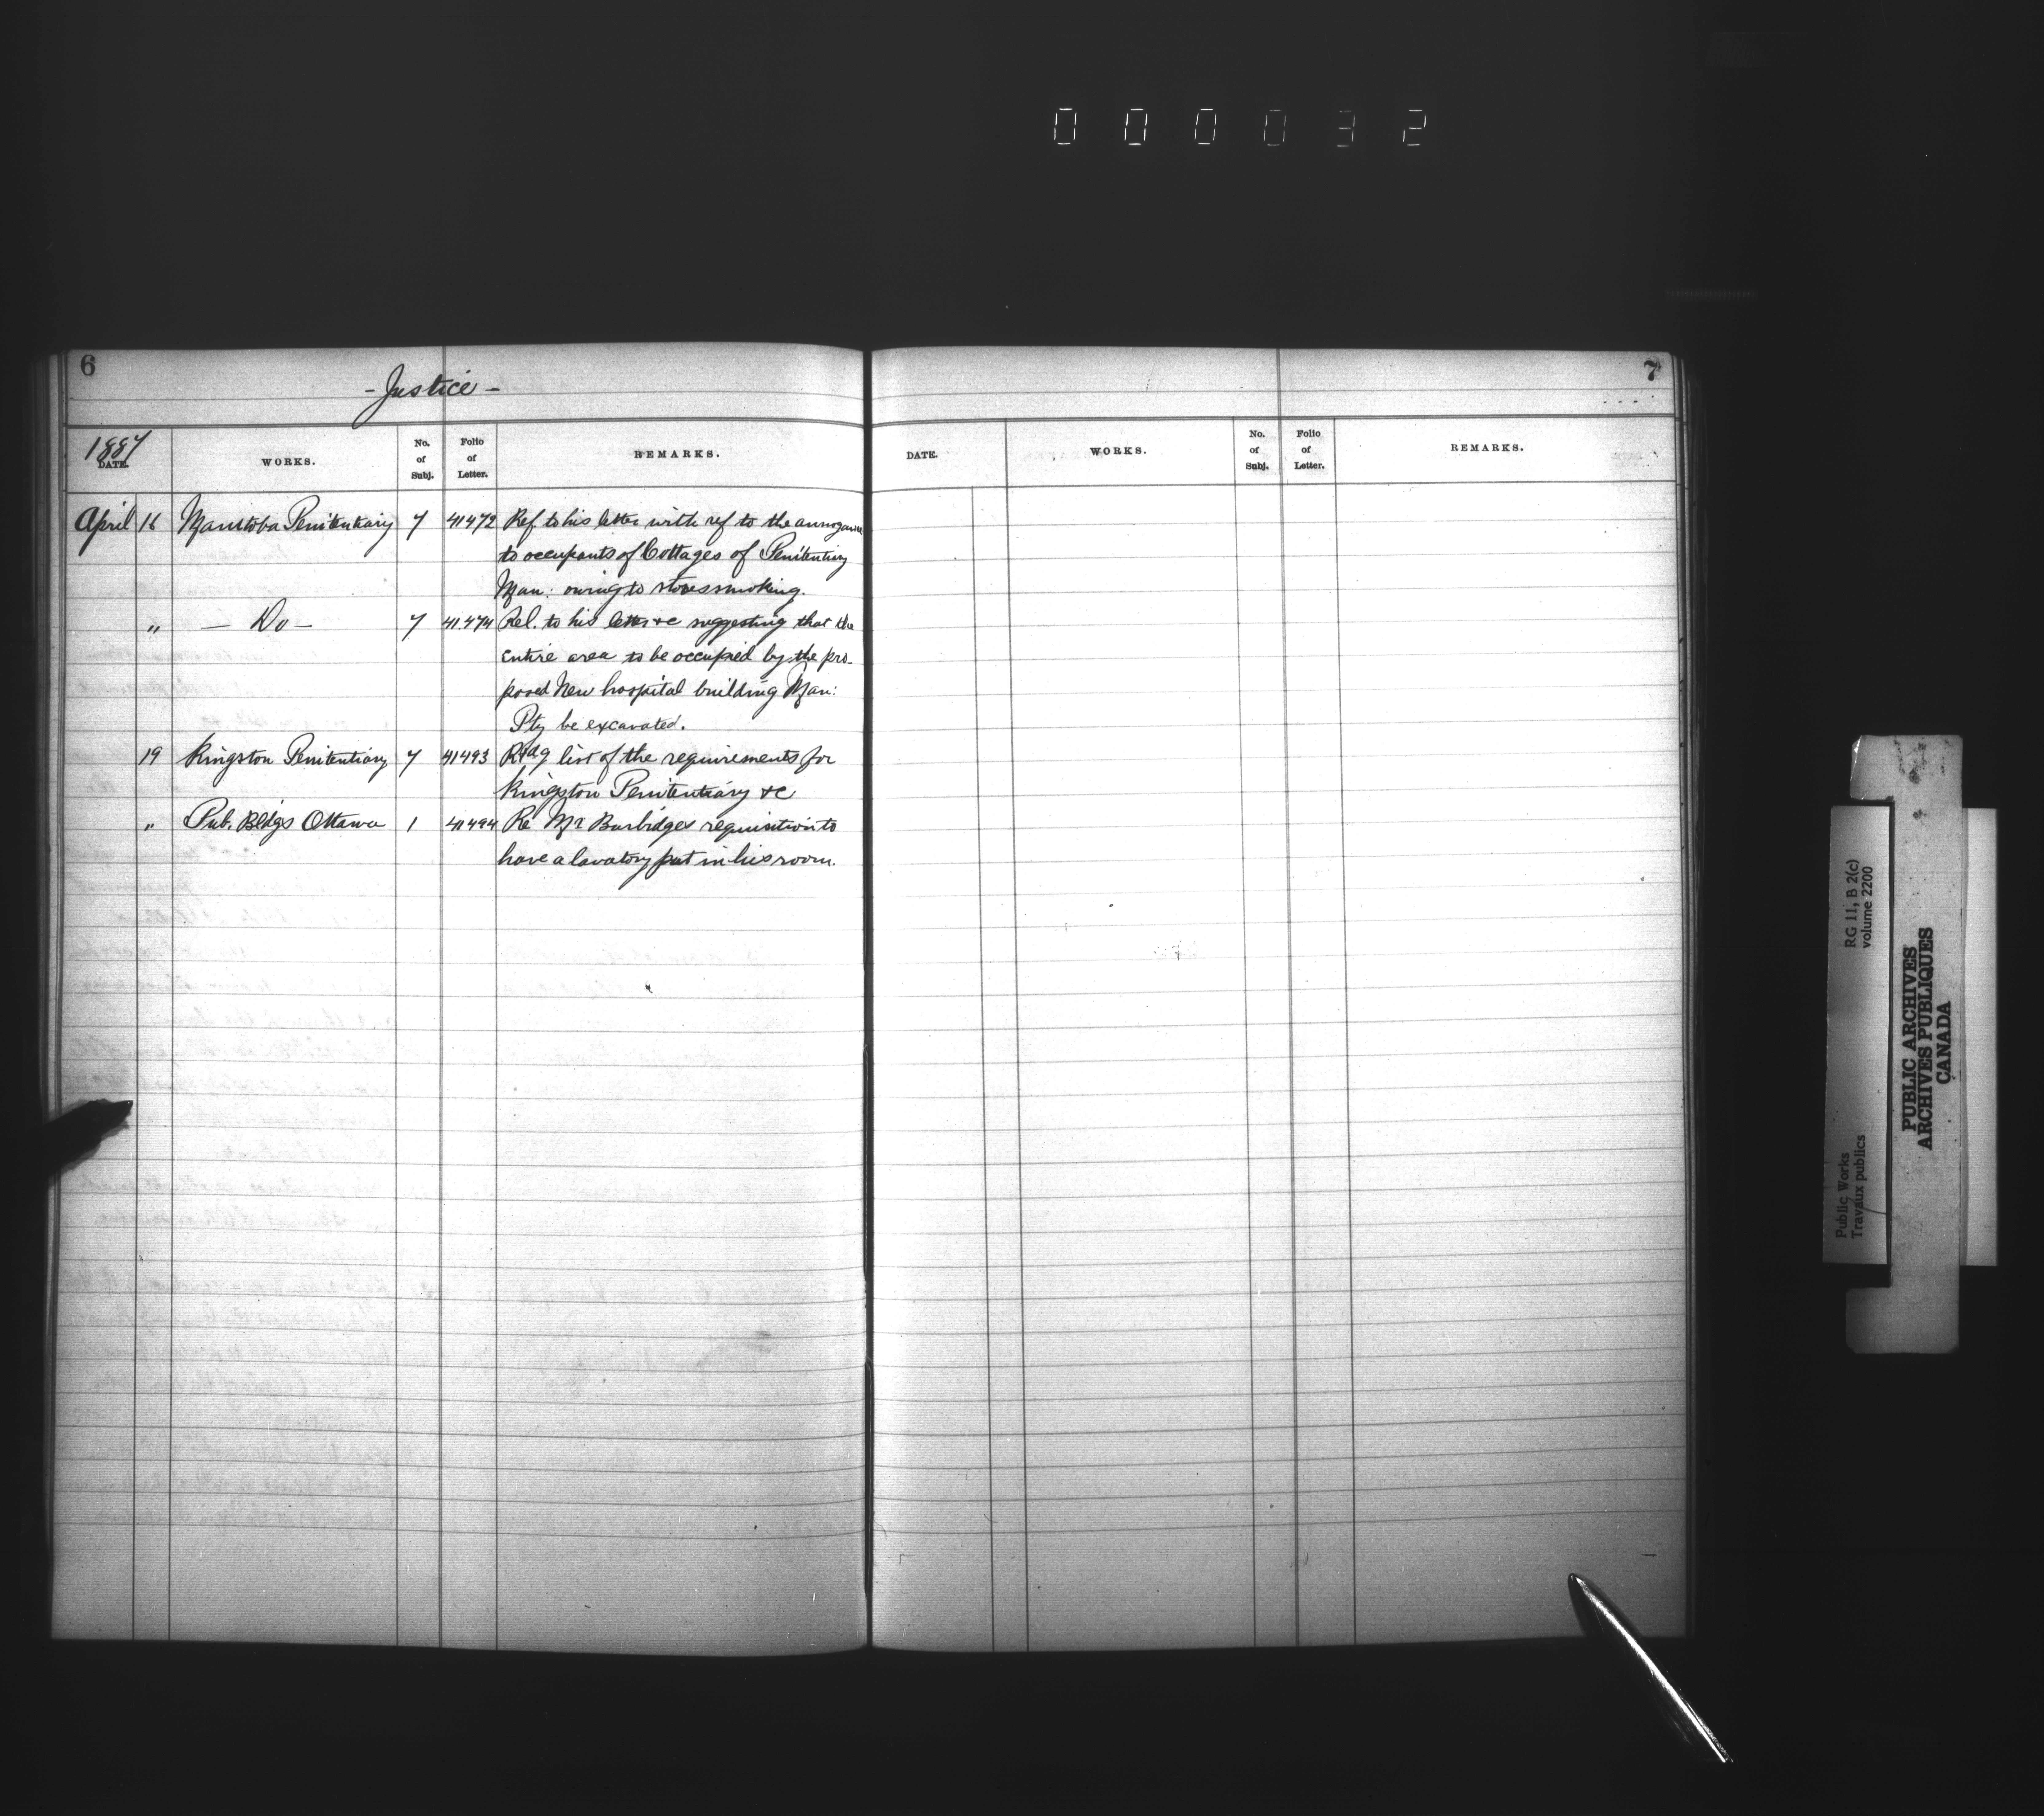 0 0 0 0 3 2
6
- Justice -
1887
DATE. WORKS. No. of Subj. Folio of Letter. REMARKS.
April 16 Manitoba Penitentiary 7 41472 Ref to his letter with ref to the annoyance
to occupants of Cottages of Penitentiary
Man: owing to stoves smoking.
" — Do — 7 41474 Rel. to his letter &c suggesting that the
entire area to be occupied by the pro-
posed New hospital building Man:
Pty be excavated.
19 Kingston Penitentiary 7 41493 Rtdg list of the requirements for
Kingston Penitentiary &c
" Pub. Bldgs Ottawa 1 41494 Re Mr Burbidges requisition to
have a lavatory put in his room.
7
DATE. WORKS. No. of Subj. Folio of Letter. REMARKS.
Public Works
Travaux publics
RG 11, B 2(c)
volume 2200
PUBLIC ARCHIVES
ARCHIVES PUBLIQUES
CANADA